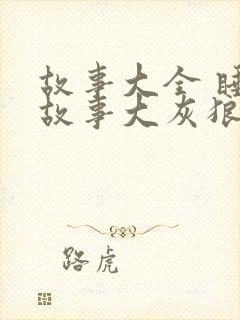 故事大全 睡
故事大灰狼
路虎